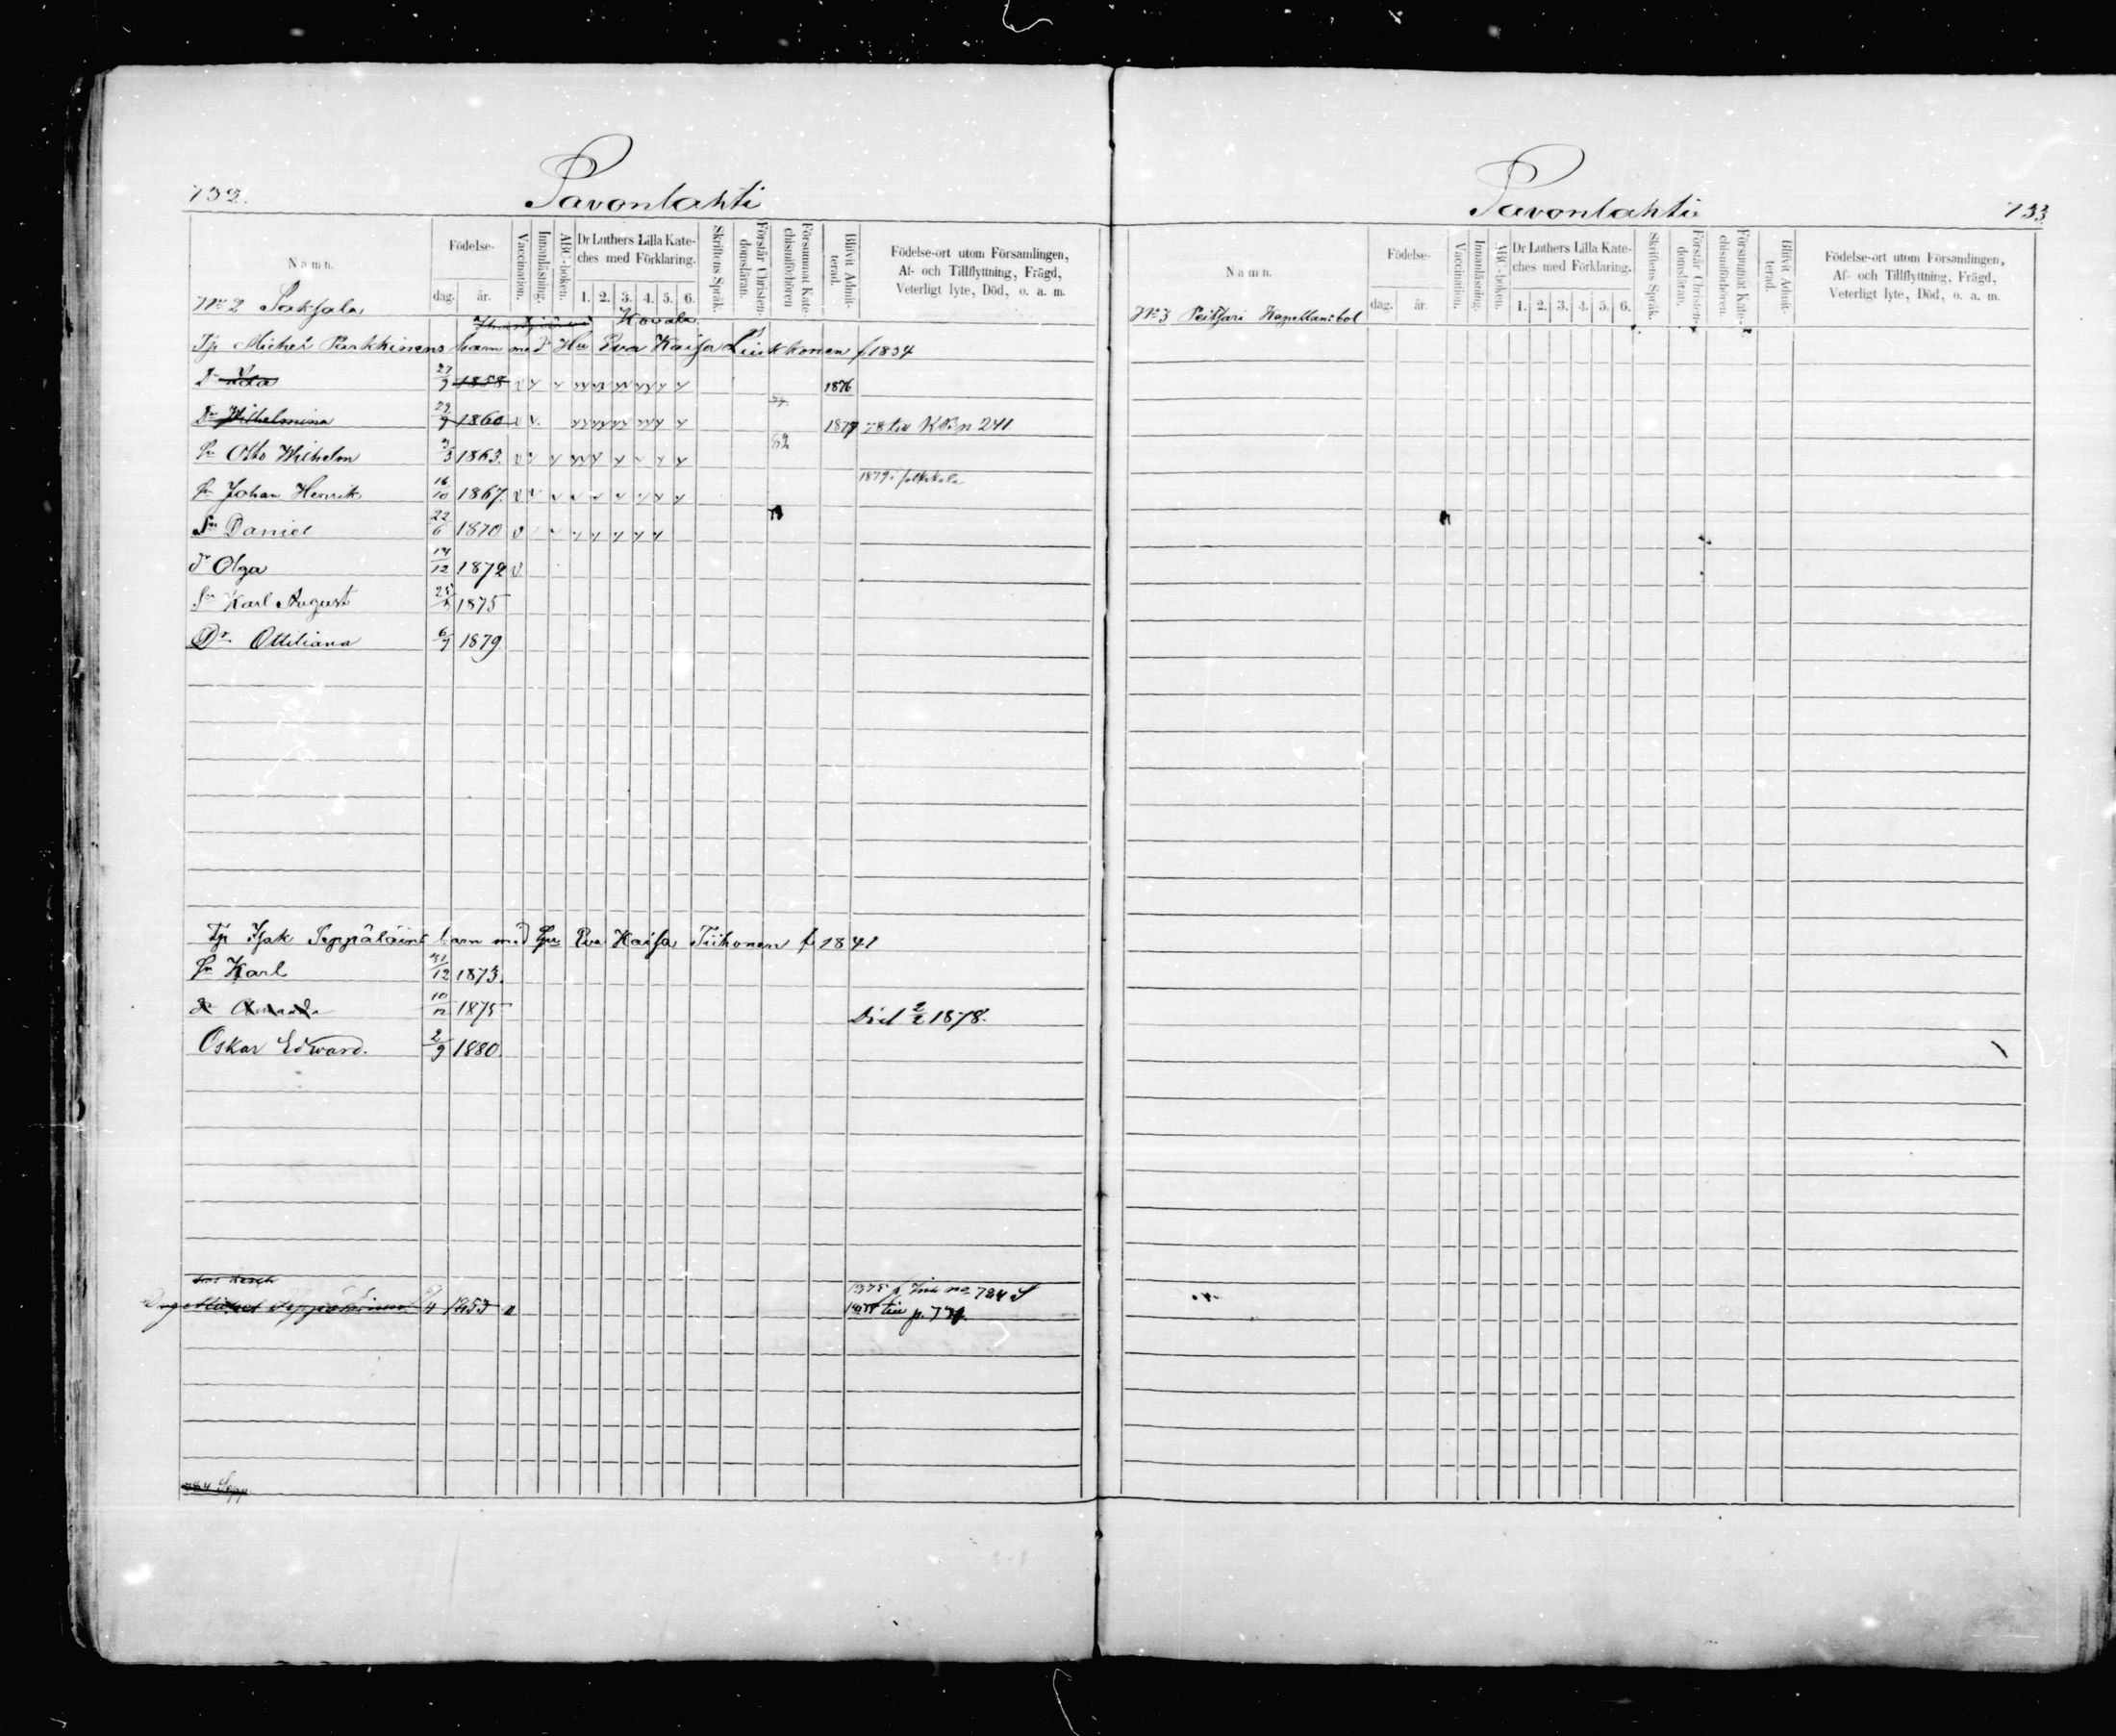 732. Savonlahti
Namn.
Födelse-
dag. år.
Vaccination.
Innanläsning.
ABC-boken.
Dr Luthers Lilla Kate-
ches med Förklaring.
1. 2. 3. 4. 5. 6.
Skriftens Språk.
Förstår Christen-
domsläran.
Försummat Kate-
chismiförhören
Blifvit Admit-
terad.
Födelse-ort utom Församlingen,
Af- och Tillflyttning, Frägd,
Veterligt lyte, Död, o. a. m.
No 2 Saksala
Kovala
Tp Michel Parkkinens barn med Hu Eva Kaisa Liukkonen f. 1834
Dr Ida 27/9 1858 1876
Dr Wilhelmina 29/9 1860 1877 78 till KB. n 241
Sn Otto Wilhelm 3/3 1863. 82
Sn Johan Henrik 16/10 1867. 1879 i folkskola
Sn Daniel 22/6 1870
Dr Olga 14/12 1872
Sn Karl August 25 1875
Dr. Ottiliana 6/7 1879
Tp Isak Seppäläins barn med Hu Eva Kaisa Tiihonen f 1841
Sn Karl 31/12 1873.
dr Amanda 10/12 1875 Död 2/2 1878.
Oskar Edward. 2/9 1880.
Dng Michel Seppäläinen 4 1853 1875 fr no 724
till p. 731.
Sepp
Savonlahti 733
Namn.
Födelse-
dag. år.
Vaccination.
Innanläsning.
ABC-boken.
Dr Luthers Lilla Kate-
ches med Förklaring.
1. 2. 3. 4. 5. 6.
Skriftens Språk.
Förstår Christen-
domsläran.
Försummat Kate-
chismiförhören.
Blifvit Admit-
terad.
Födelse-ort utom Församlingen,
Af- och Tillflyttning, Frägd,
Veterligt lyte, Död, o. a. m.
No 3 Peitsari Kapellansbol